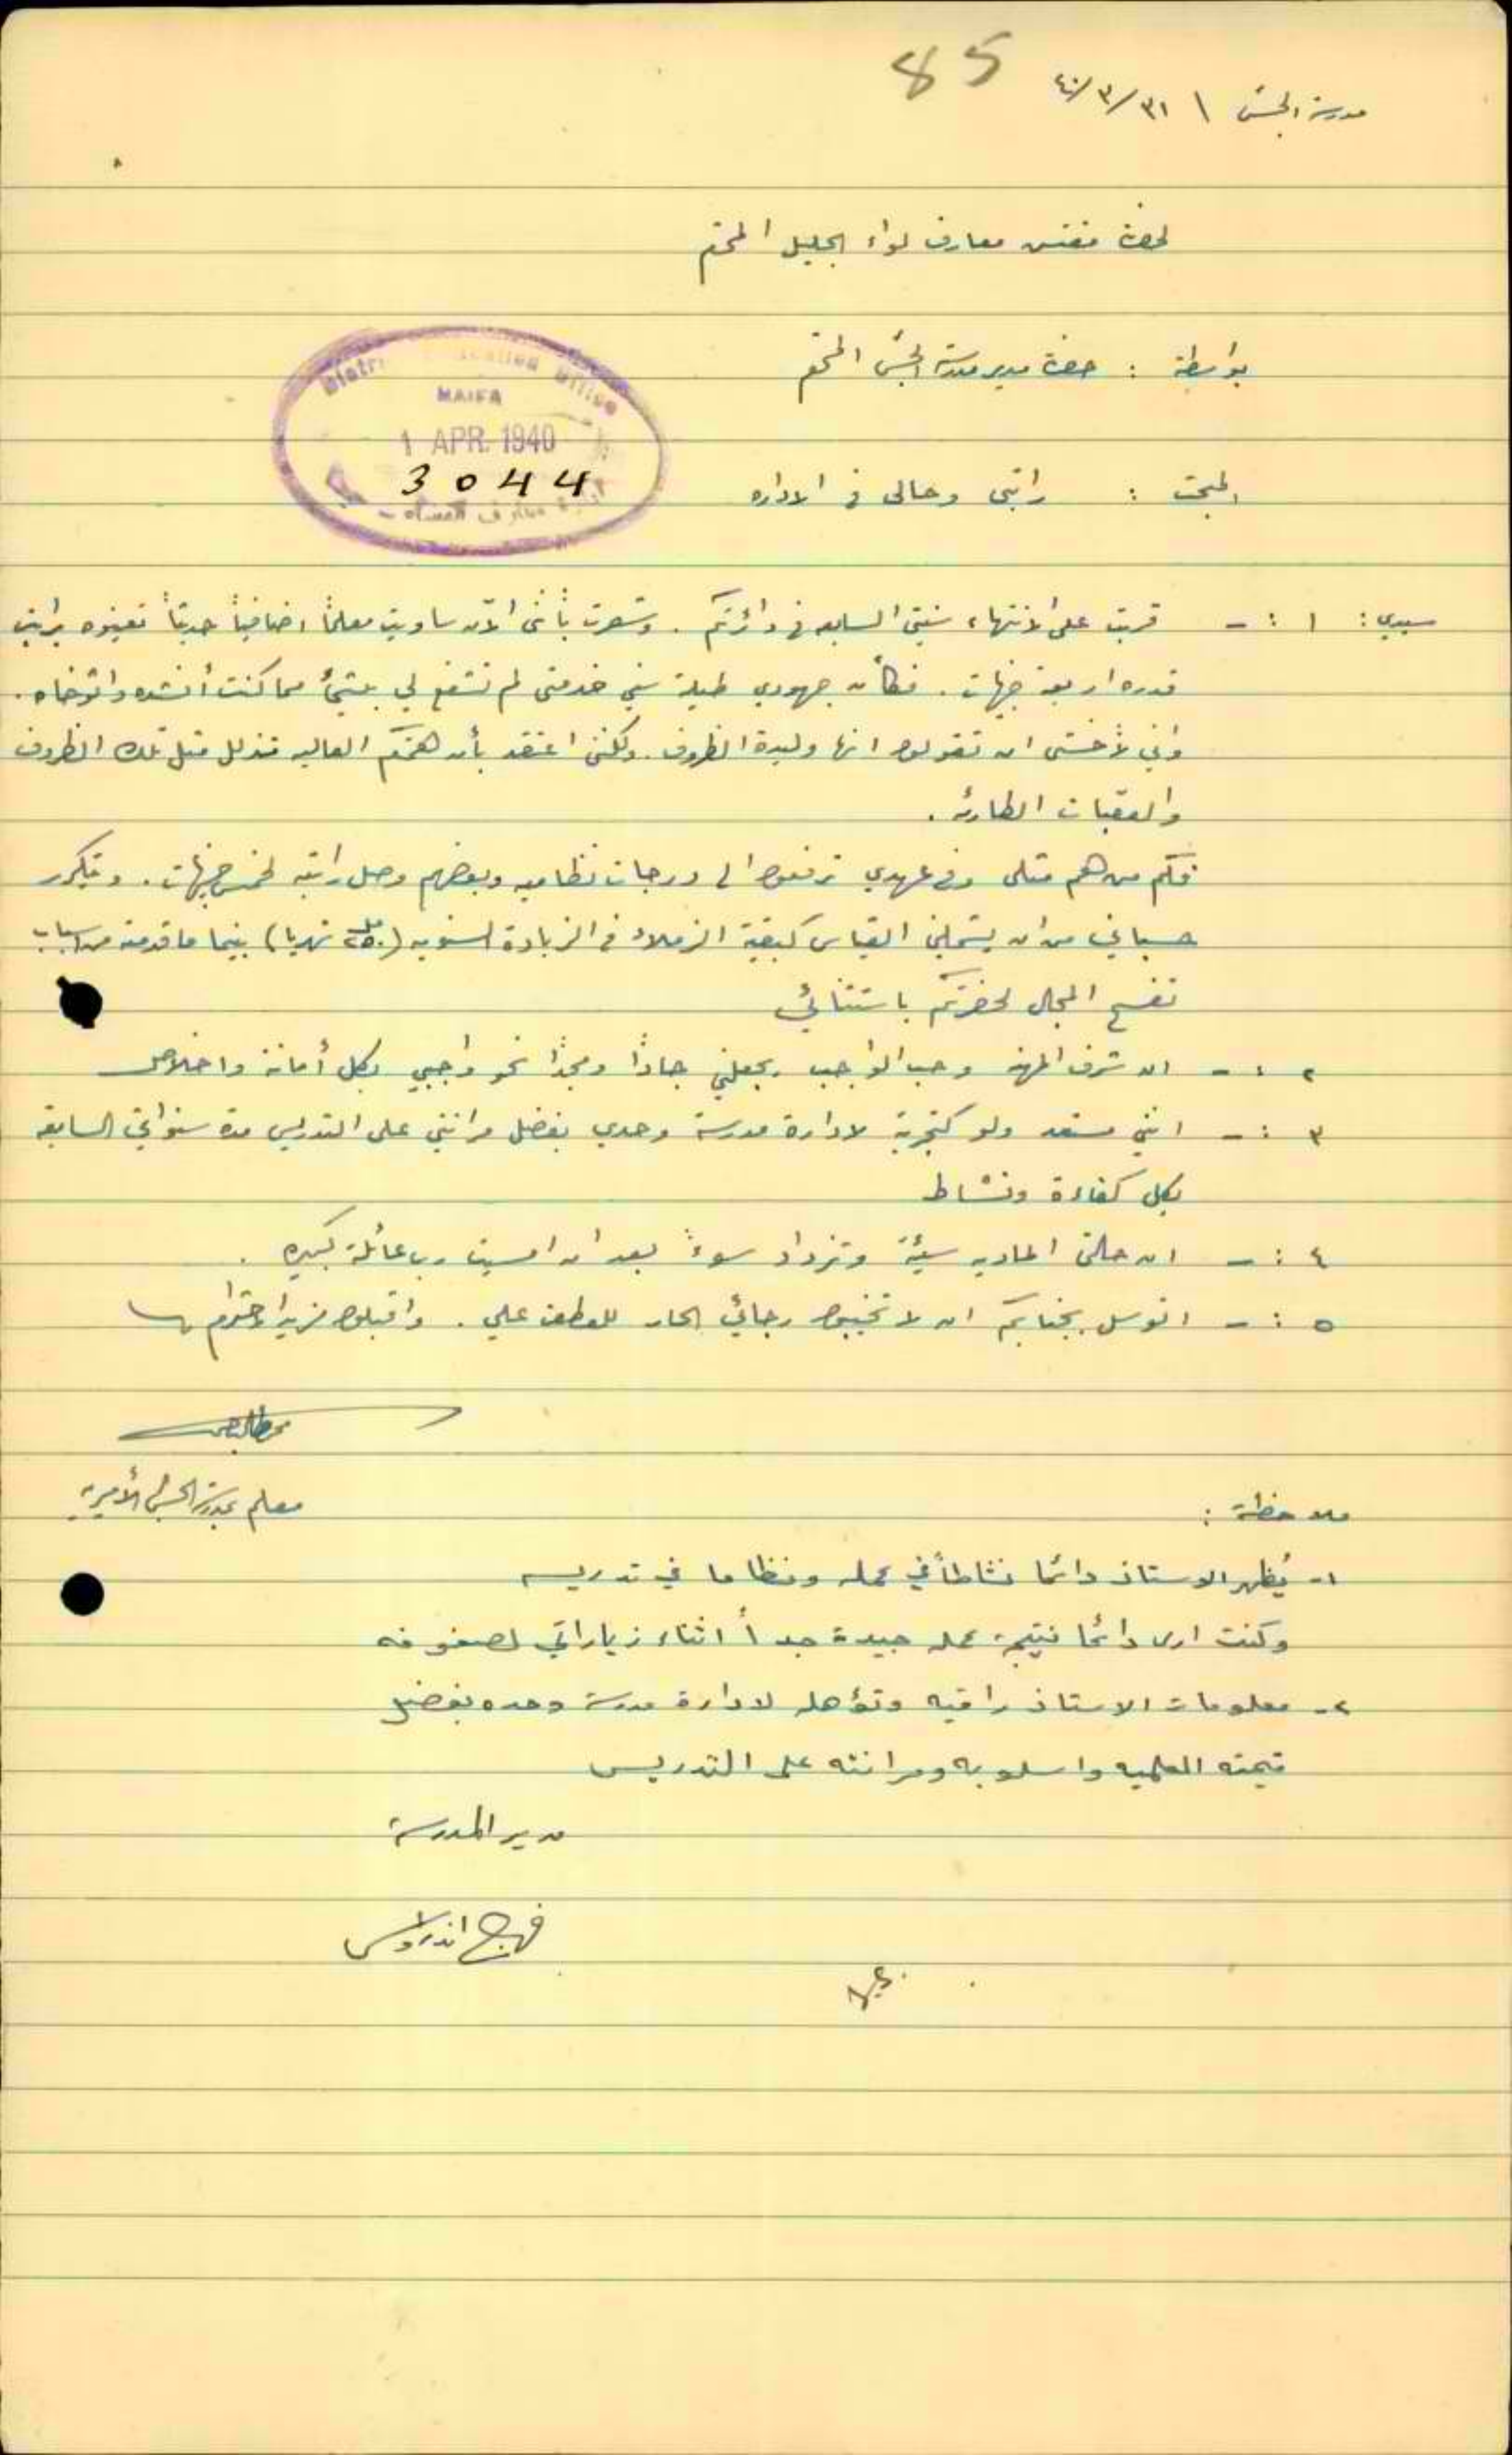 85
مدرسة الجش \ ٣١/٣/٤٠
لحضرة مفتش معارف لواء الجليل المحترم
بواسطة : حضرة مدير مدرسة الجش المحترم
District Education Office
HAIFA
1 APR. 1940
3044
المبحث : راتبي وحالي في الاداره
سيدي : ١ :- قربت على الانتهاء سنتي السابعه في دائرتكم . وشعرت بأنني الآن ساويت معلماً اضافياً حديثاً تعينوه براتب
قدره اربعة جنيهات . فكأن جهودي طيلة سني خدمتي لم تشفع لي بشيء مما كنت أنشده واتوخاه .
واني لأخشى ان تقولوا انها وليدة الظروف . ولكنني اعتقد بأن همتكم العاليه تذلل مثل تلك الظروف
والعقبات الطارئه .
فكم من هم مثلي وفي عهدي ترفعوا الى درجات نظاميه وبعضهم وصل راتبه لخمس جنيهات . ويتكرر
حسباني من ان يشملني القياس كبقية الزملاء في الزيادة السنويه (٢٥٠ مل شهريا) بينما ما قدمته من اسباب
تفسح المجال لحضرتكم باستثنائي
٢ :- ان شرف المهنه وحب الواجب يجعلني جاداً ومجداً نحو واجبي بكل أمانة واخلاص
٣ :- انني مستعد ولو كتجربة لادارة مدرسة وحدي بفضل مرانتي على التدريس مدة سنواتي السابقه
بكل كفاءة ونشاط
٤ :- ان حالتي الماديه سيئة وتزداد سوءً بعد ان امسيت رب عائلة كبيره .
٥ :- اتوسل بجنابكم ان لا تخيبوا رجائي الحار للعطف علي . واقبلوا مزيد احترامي
معلم بمدرسة الجش الأميريه
ملاحظة :
١- يُظهر الاستاذ دائما نشاطاً في عمله ونظاما في تدريسه
وكنت ارى دائما نتيجة عمله جيدة جداً اثناء زياراتي لصفوفه
٢- معلومات الاستاذ راقيه وتؤهله لادارة مدرسة وحده بفضل
قيمته العلميه واسلوبه ومرانته على التدريس
مدير المدرسة
فرج اندراوس